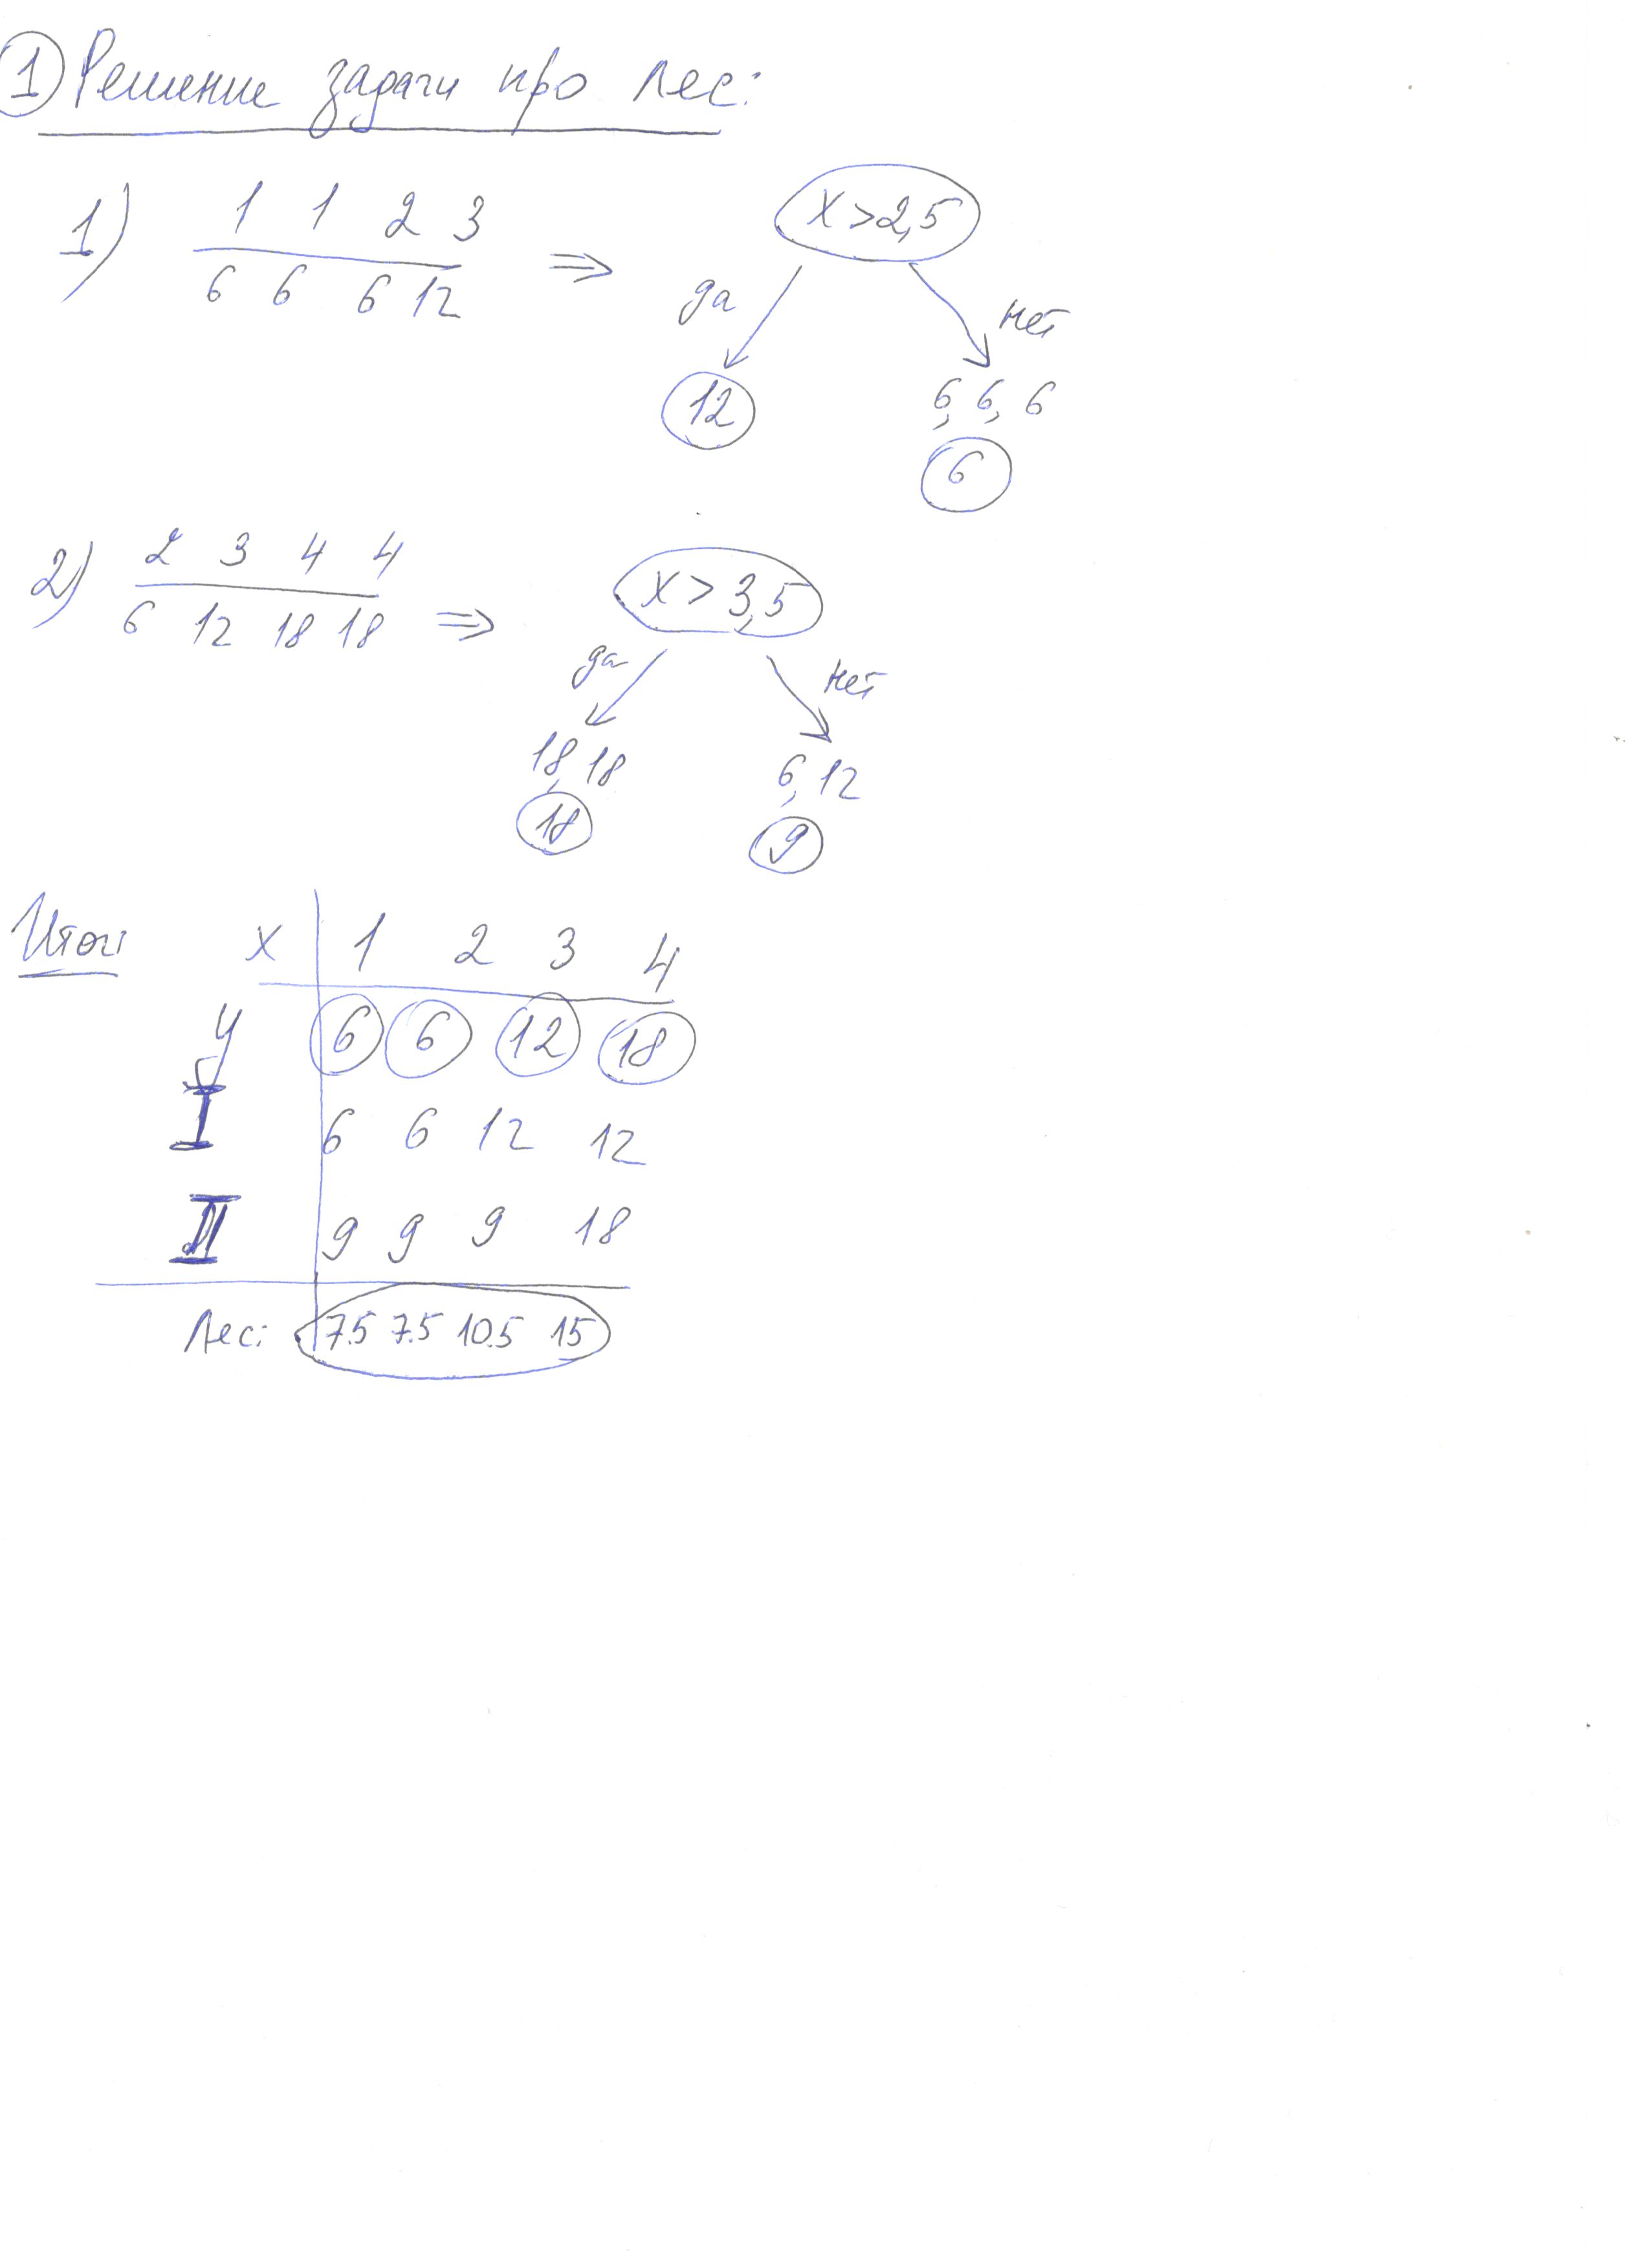 ① Решение задачи про лес:
1) 1 1 2 3
6 6 6 12 ⇒
x > 2,5
да нет
12 6, 6, 6
6
2) 2 3 4 4
6 12 18 18 ⇒
x > 3,5
да нет
18, 18 6, 12
18 9
Итог: x 1 2 3 4
y 6 6 12 18
I 6 6 12 12
II 9 9 9 18
Лес: 7.5 7.5 10.5 15